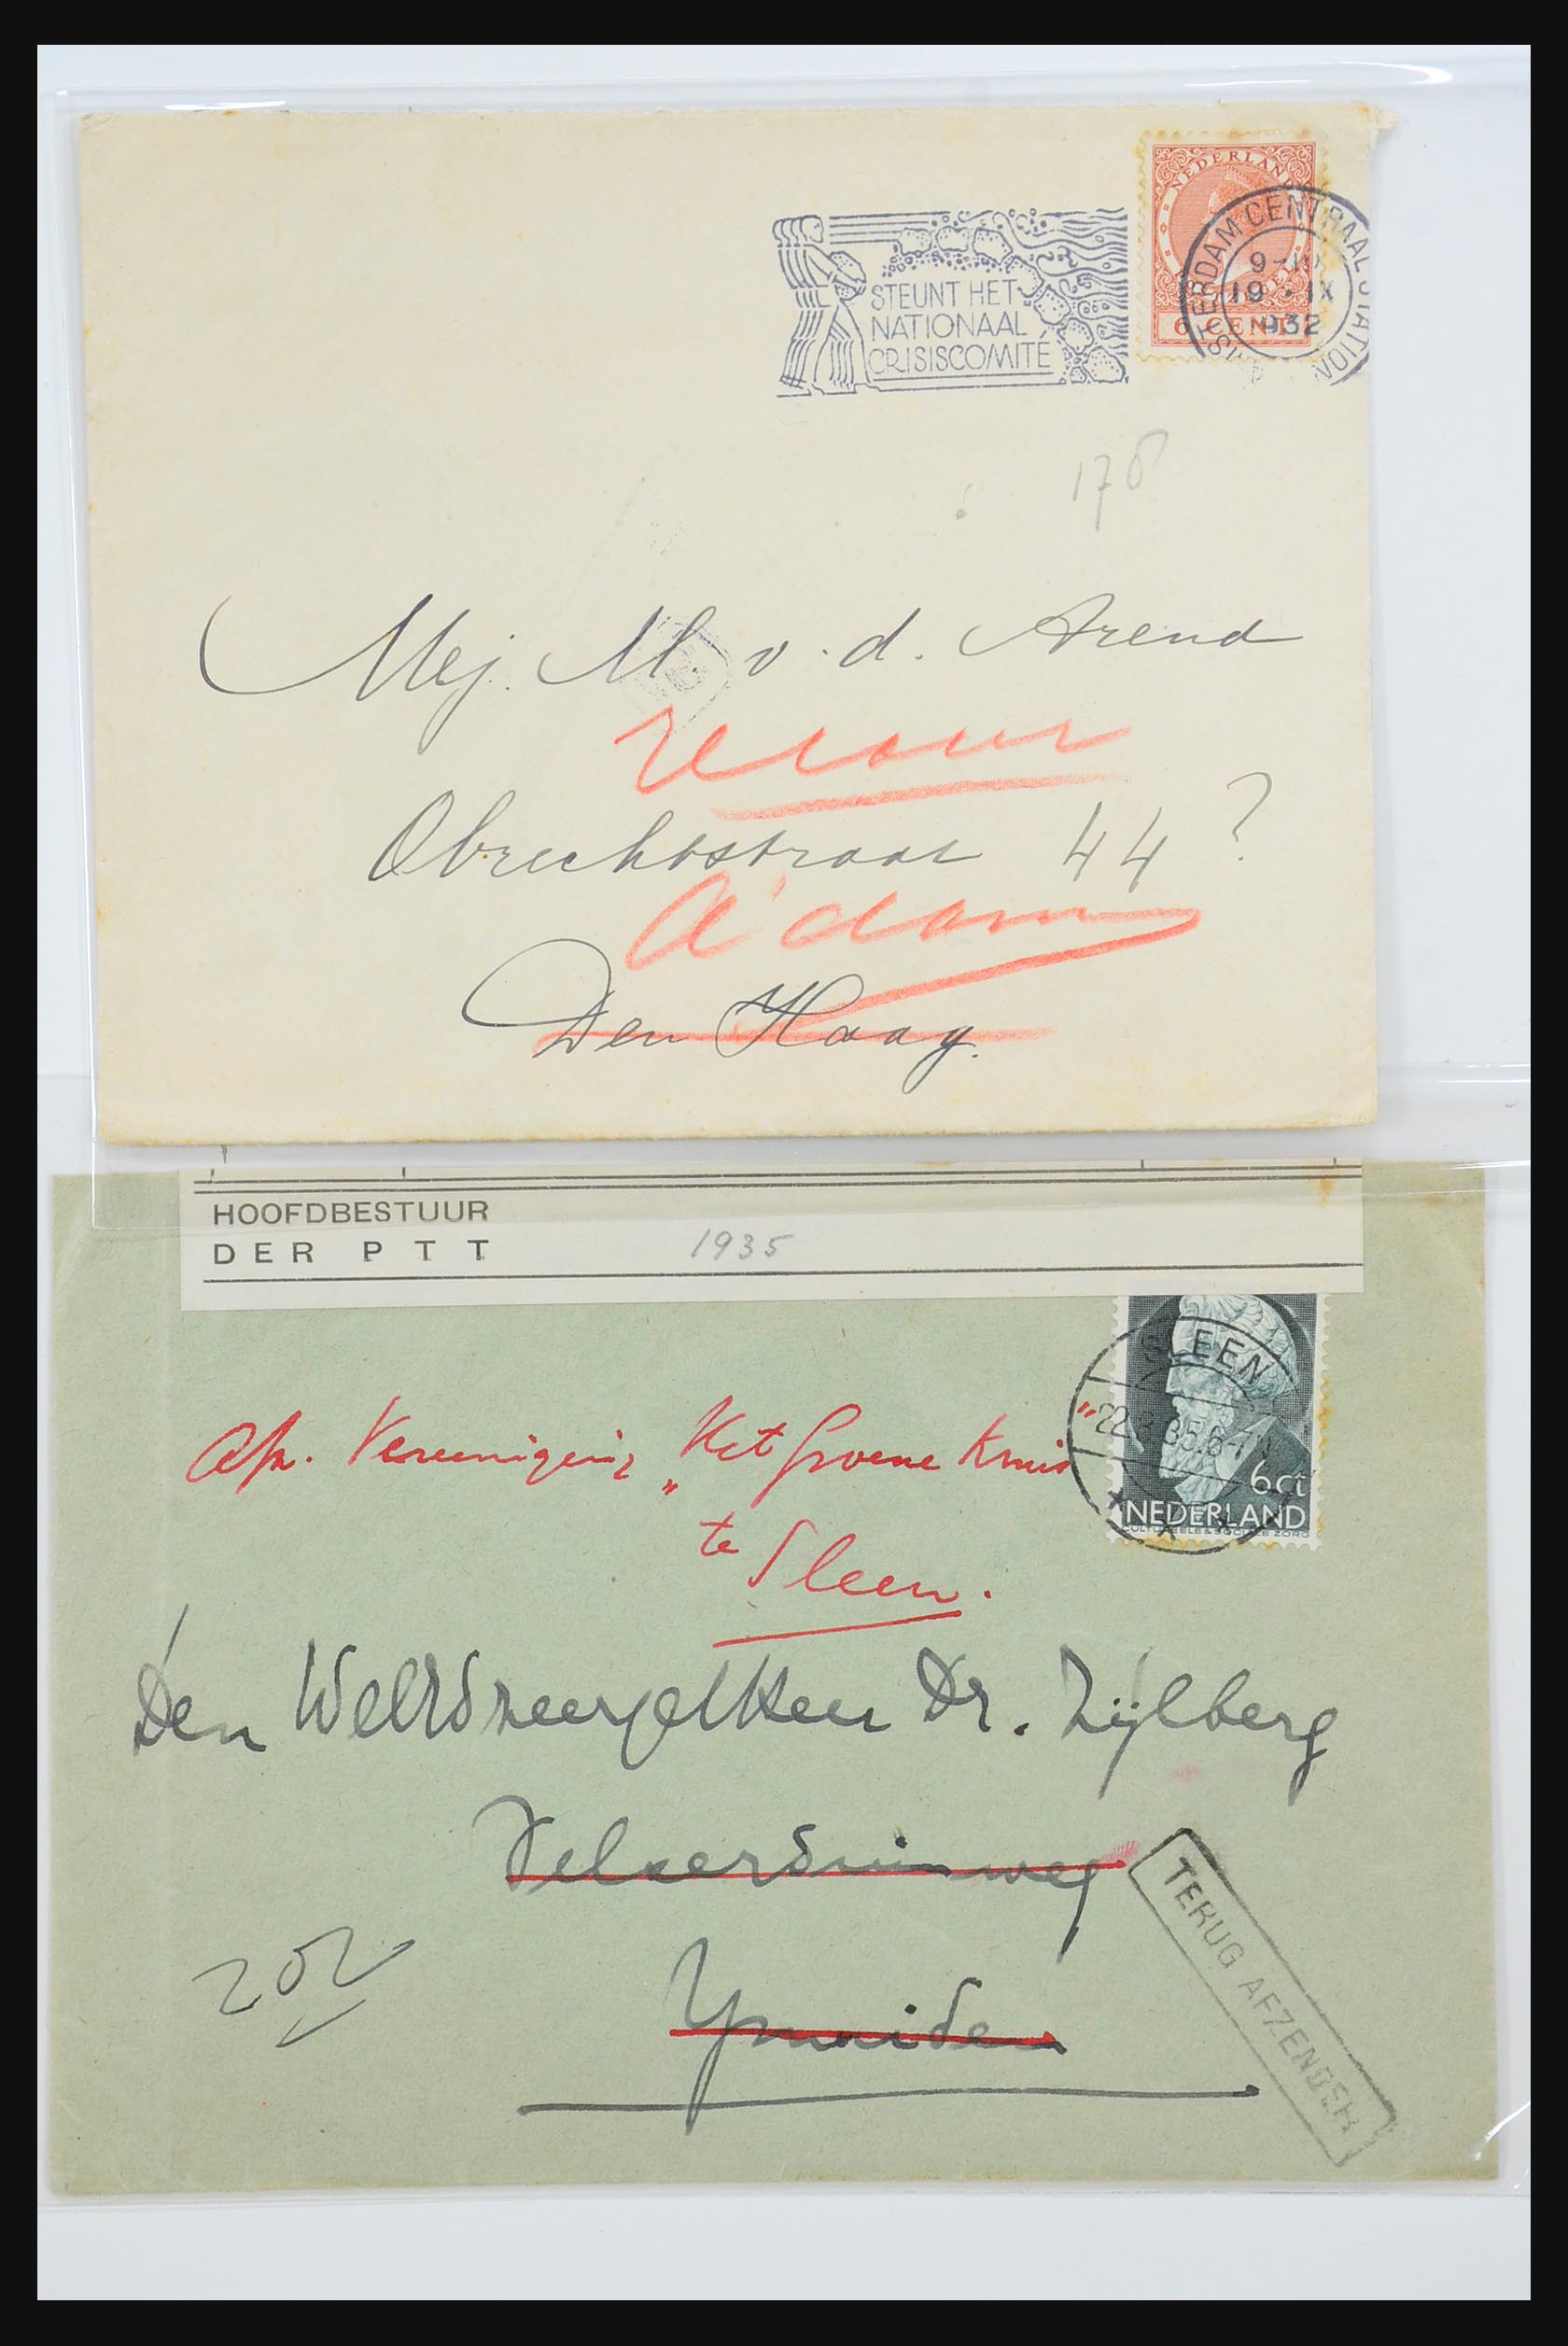 NEDERLAND
6 CENT
AMSTERDAM CENTRAAL STATION
9-10
19 · IX
1932
STEUNT HET
NATIONAAL
CRISISCOMITÉ
178
Mej. M. v. d. Arend
Retour
Obrechtstraat 44 ?
A'dam
Den Haag.
HOOFDBESTUUR
DER PTT
1935
SLEEN
6 ct
NEDERLAND
CULTUREELE & SOCIALE ZORG
Afz. Vereeniging „Het Groene Kruis"
te Sleen.
Den WelEdZeergelHeer Dr. Zijlberg
Velserduinweg
Ymuiden
202
TERUG AFZENDER